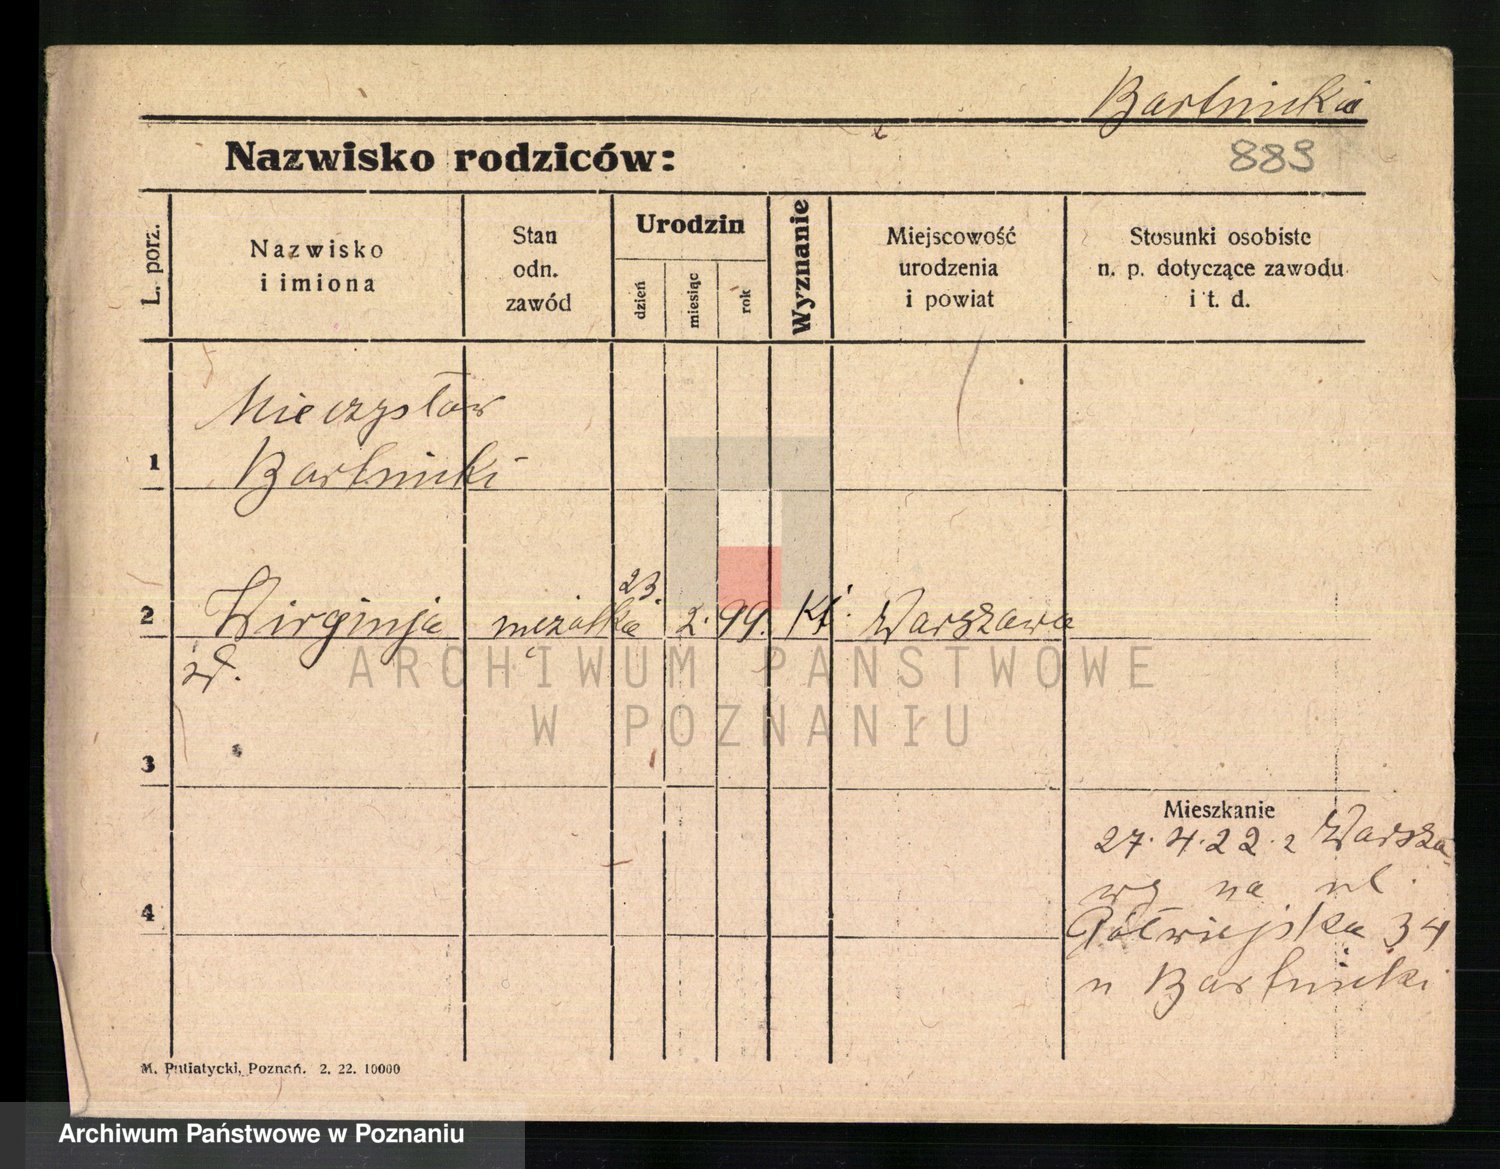 Bartnicka
889
Nazwisko rodziców:
L. porz.
Nazwisko
i imiona
Stan
odn.
zawód
Urodzin
dzień
miesiąc
rok
Wyznanie
Miejscowość
urodzenia
i powiat
Stosunki osobiste
n. p. dotyczące zawodu
i t. d.
Mieczysław
1 Bartnicki
2 Wirginja mężatka 23. 2. 99. Kt. Warszawa
zd.
ARCHIWUM PAŃSTWOWE
W POZNANIU
3
Mieszkanie
27.4.22. z Warsza-
wy na ul.
4 Półwiejska 34
u Bartnicki
M. Putiatycki, Poznań. 2. 22. 10000
Archiwum Państwowe w Poznaniu